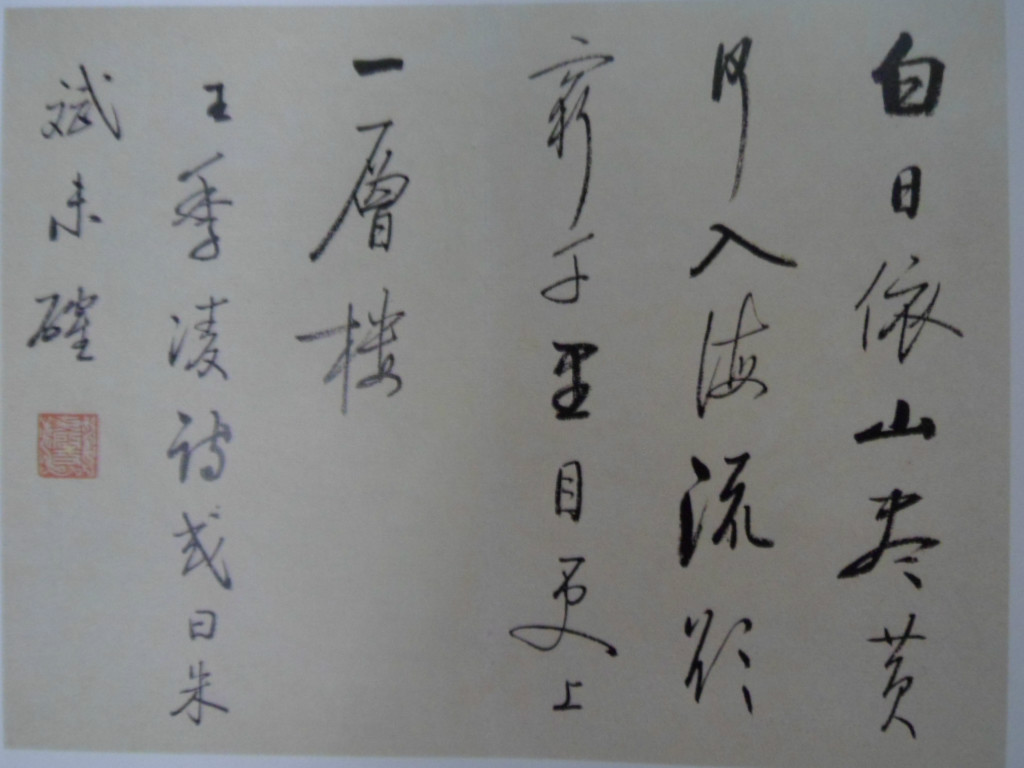 白日依山尽黄
河入海流欲
穷千里目更上
一層楼
王季凌诗或曰朱
斌未確